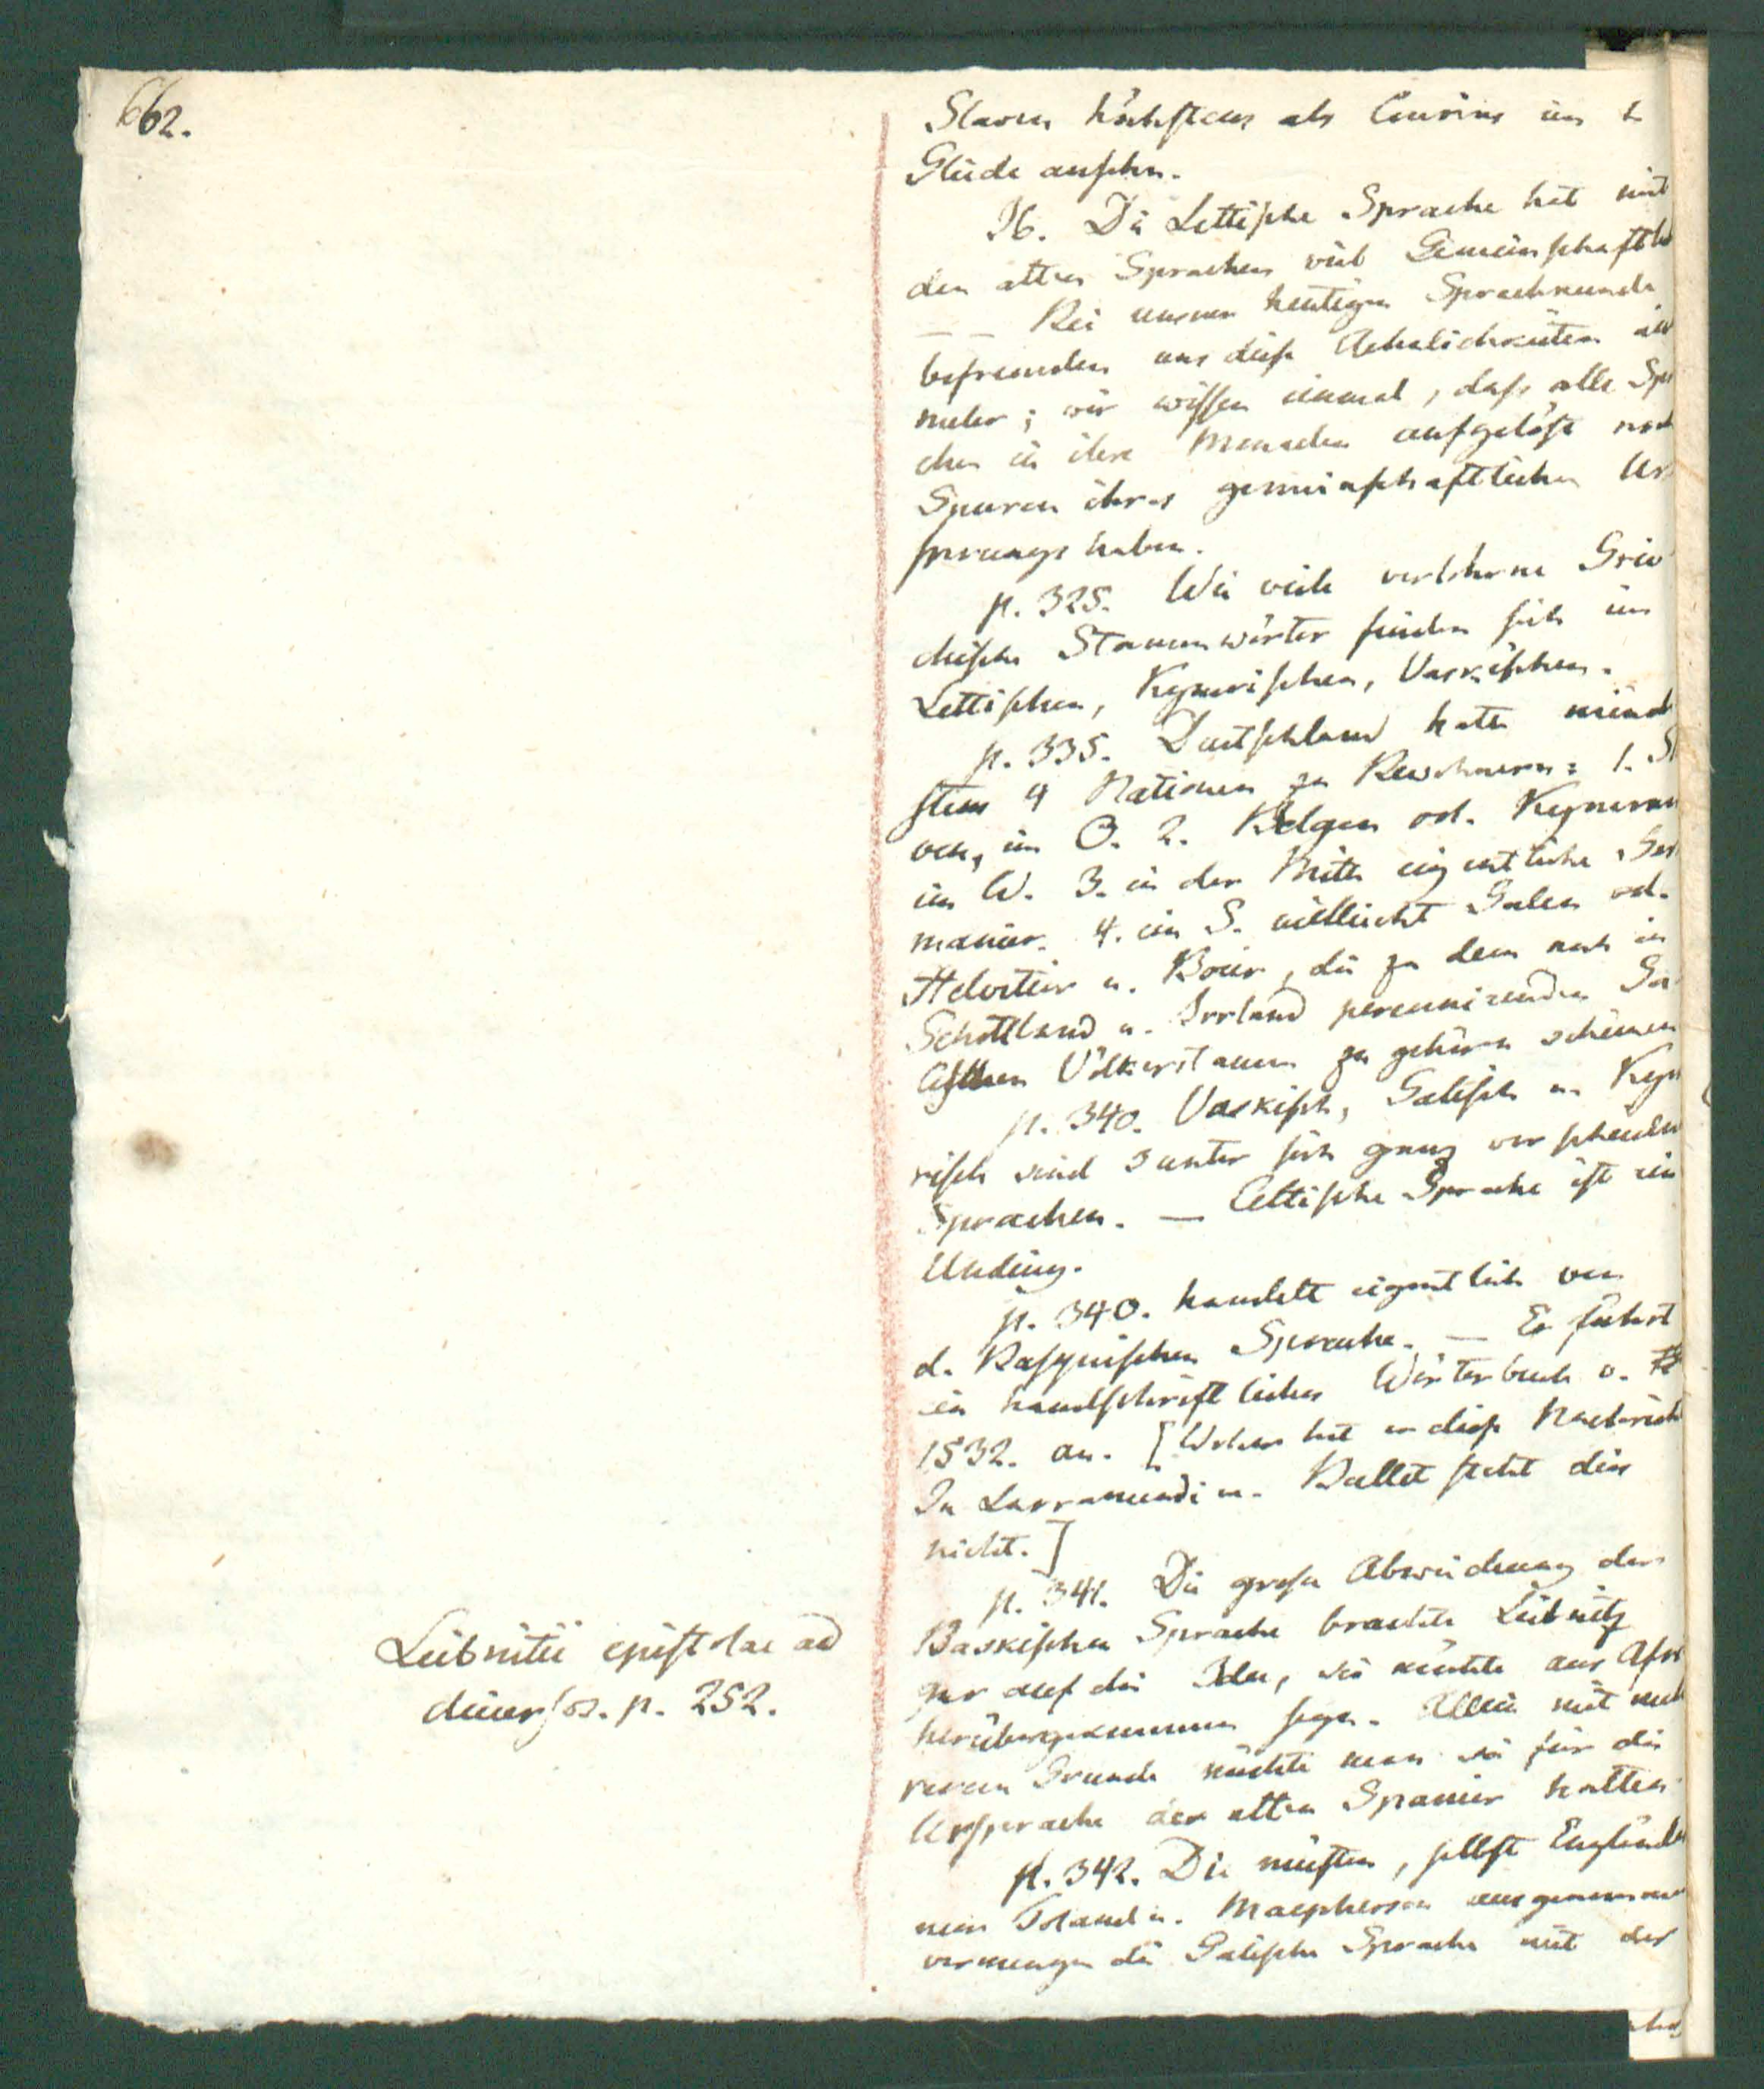 662.
Slaven höchstens als Cousins im
Gliede ansehn.
Ib. Die Lettische Sprache hat mit
den alten Sprachen viel Gemeinschaftl
— — Bei unsrer heutigen Sprachkunde
befremden uns diese Aehnlichkeiten nie
meler; wir wissen einmal, dass alle Spr
chen in ihre Monaden aufgelöst noch
Spuren ihres gemeinschaftlichen Ur
sprungs haben.
p. 325. Wie viele verlohrne Grie
chische Stammwörter finden sich im
Lettischen, Kymrischen, Vaskischen.
p. 335. Deutschland hatte mind
stens 4 Nationen zu Bewohnern: 1. Sl
ven, im O. 2. Belgen od. Kymren
im W. 3. in der Mitte eigentliche Ger
manier. 4. im S. vielleicht Galen od.
Helvetier u. Boier, die zu dem noch in
Schottland u. Irrland perennirenden Ga
lischen Völkerstamm zu gehören scheinen
p. 340. Vaskisch, Galisch u. Kym
risch sind 3 unter sich ganz verschieden
Sprachen. — Celtische Sprache ist ein
Unding.
p. 340. handelt eigentlich von
d. Basquischen Sprache. — Er führt
ein handschriftliches Wörterbuch v.
1532. an. [Woher hat er diese Nachricht
In Larramendi u. Bullet steht dies
nicht.]
p. 341. Die grosse Abweichung der
Baskischen Sprache brachte Leibnitz
gar auf die Idee, sie möchte aus Afri
herübergekommen seyn. Allein mit meh
rerem Grunde möchte man sie für die
Ursprache der alten Spanier halten
Leibnitii epistolae ad
diversos. p. 252.
p. 342. Die meisten, selbst Englände
nur Toland u. Macpherson ausgenommen
vermengen die Galische Sprache mit der